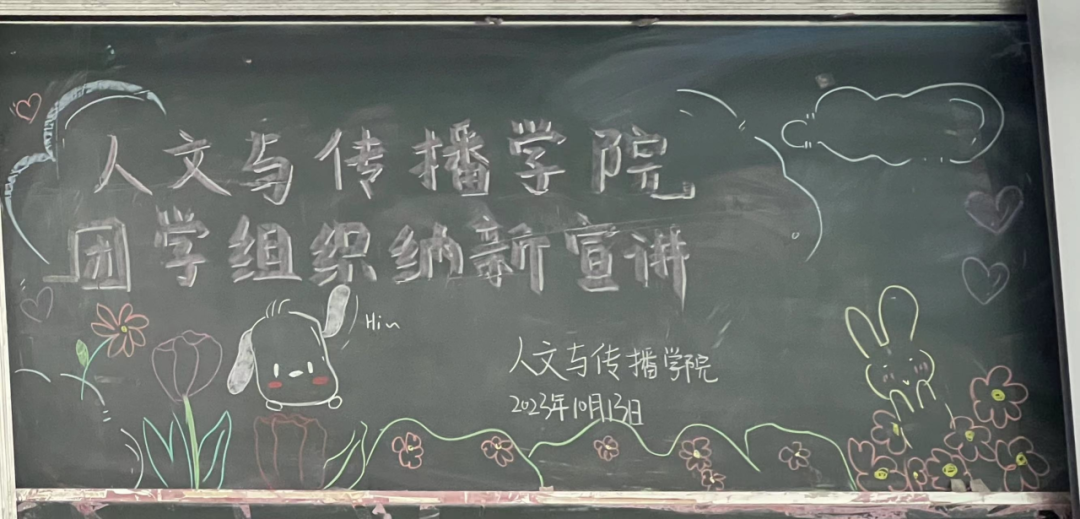 人文与传播学院
团学组织纳新宣讲
Hi~
人文与传播学院
2023年10月13日